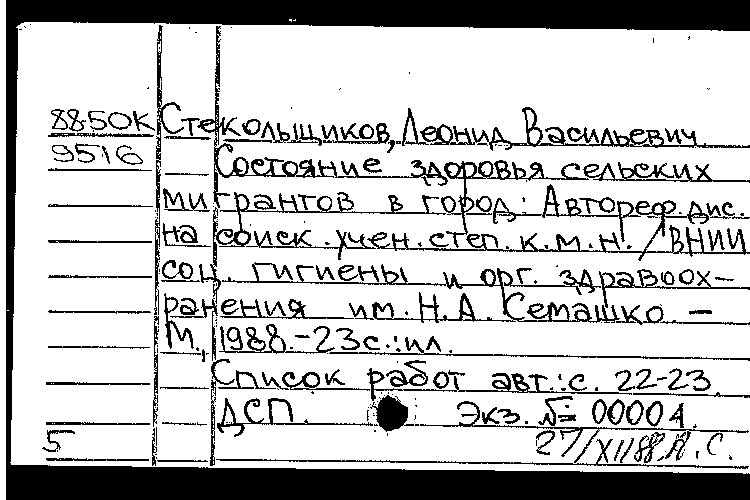 8850К Стекольщиков, Леонид Васильевич
9516 Состояние здоровья сельских
мигрантов в город: Автореф. дис.
на соиск. учен. степ. к.м.н. / ВНИИ
соц. гигиены и орг. здравоох-
ранения им. Н.А. Семашко. –
М., 1988.-23с.:ил.
Список работ авт.:с. 22-23.
ДСП. Экз. № 00004.
5 27/XII88.